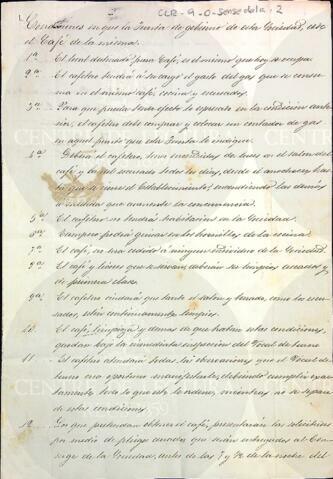 CLR-9-0-
Condiciones en que la Junta de gobierno de esta Sociedad, cede
el Café de la misma.
1ª El local dedicado para Café, es el mismo que hoy se ocupa.
2ª El cafetero tendrá á su cargo el gasto del gas que se consu-
ma en el mismo café, cocina y
3ª Para que pueda tener efecto lo espuesto en la condicion ante-
rior, el cafetero debe comprar y colocar un contador de gas
en aquel punto que esta Junta le indique.
4ª Deberá el cafetero, tener encendidas dos luces en el salon del
café, y la del escusado todos los dias, desde el anochecer has-
ta que se cierre el Establecimiento, encendiendo las demás
á medida que aumente la concurrencia.
5ª El cafetero no tendrá habitacion en la Sociedad.
6ª Tampoco podrá guisar en los hornillos de la cocina.
7ª El café, no será cedido á ningun individuo de la Sociedad.
8ª El café y licores que se sirvan, deberán ser limpios y
de primera clase.
9ª El cafetero cuidará que tanto el salon y terrado, como los escu-
sados, esten continuamente limpios.
10. El café, limpieza y demas de que tratan estas condiciones,
quedan bajo la inmediata inspeccion del Vocal de turno
11. El cafetero atenderá todas las observaciones que el Vocal de
turno crea oportuno manifestarle, debiendo cumplir exac-
tamente todo lo que este le ordene, mientras no se separe
de estas condiciones.
12. Los que pretendan obtener el café, presentarán las solicitudes
por medio de pliegos cerrados que serán entregados al Con-
serge de la Sociedad antes de las 7 y ½ de la noche del